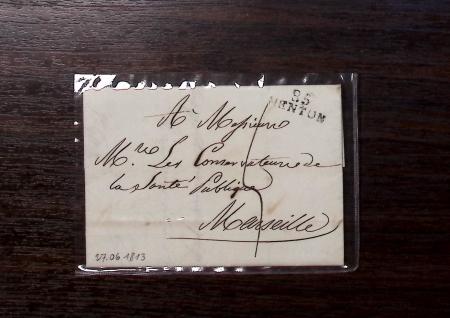 85
MENTON
A Messieurs
Mrs. Les Conservateurs de
la Santé Publique
Marseille
27.06.1813